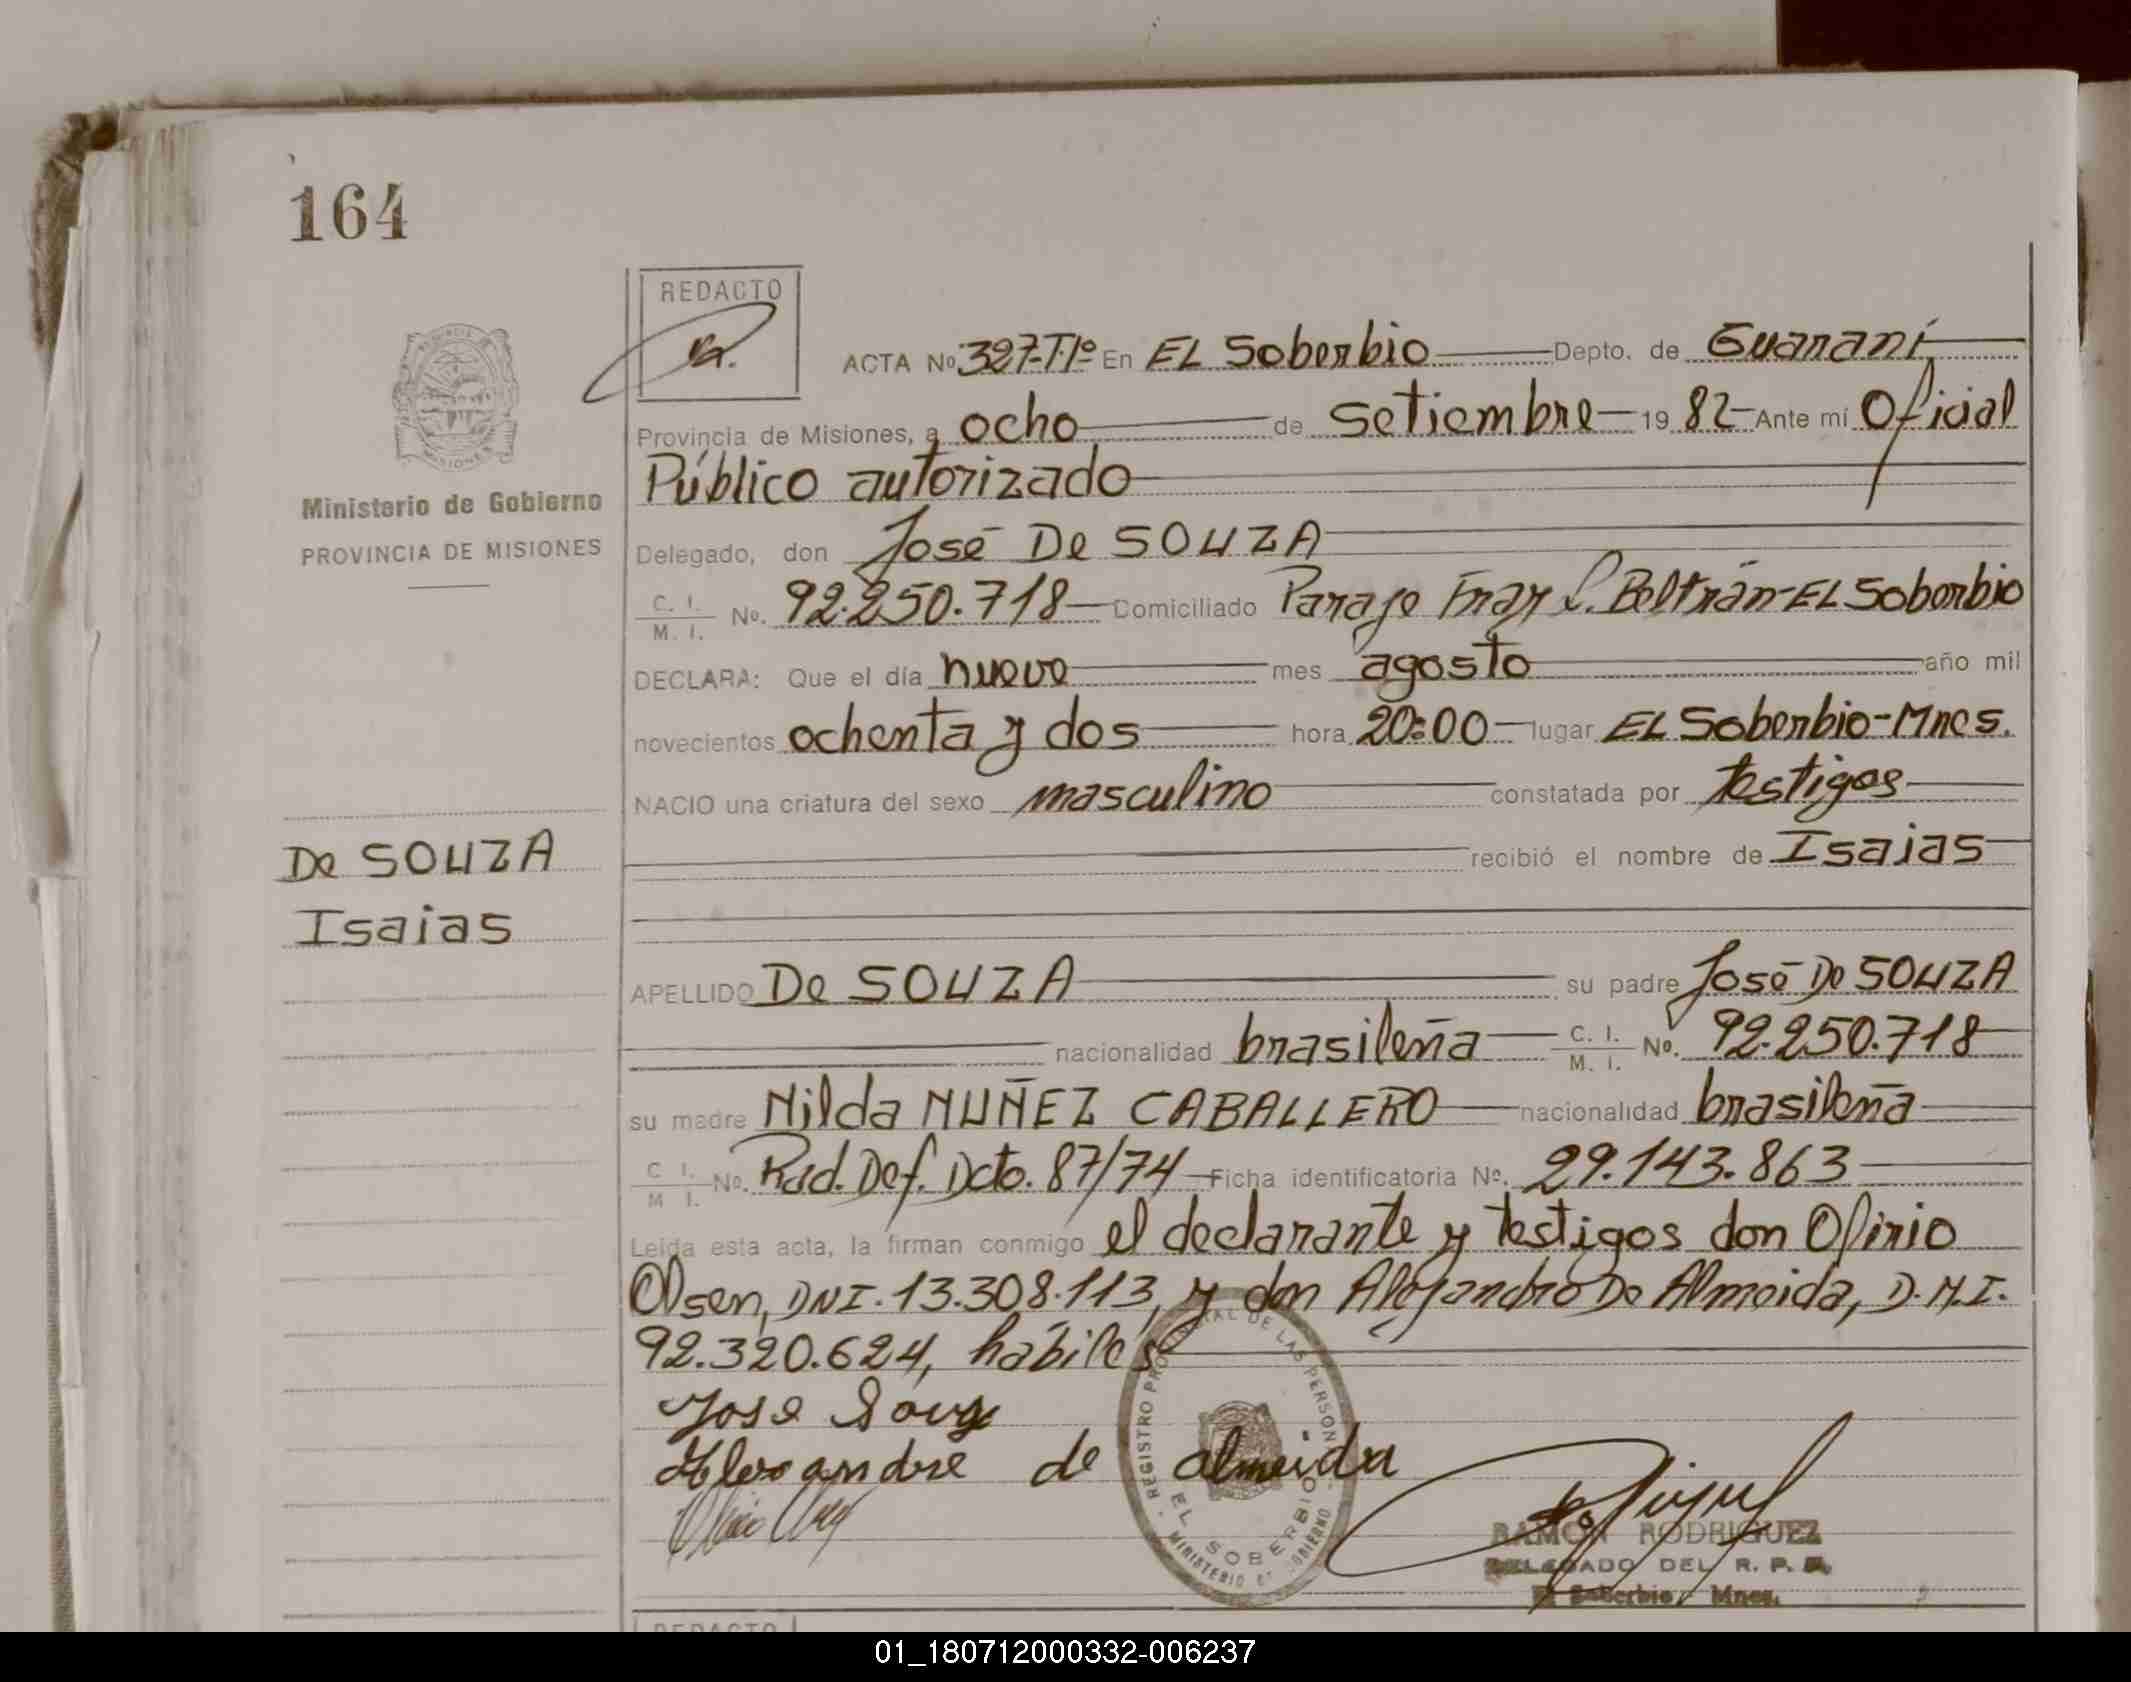 164
REDACTO
ACTA No 327-T1º En EL Soberbio Depto. de Guaraní
Provincia de Misiones, a ocho de setiembre 19 82 Ante mí Oficial
Público autorizado
Ministerio de Gobierno
PROVINCIA DE MISIONES
Delegado, don José De SOUZA
C. I.
M. I. No. 92.250.718 Domiciliado Paraje Fray L. Beltrán-EL Soberbio
DECLARA: Que el día nueve mes agosto año mil
novecientos ochenta y dos hora 20:00 lugar EL Soberbio-Mnes.
NACIO una criatura del sexo masculino constatada por testigos
De SOUZA
recibió el nombre de Isaias
Isaias
APELLIDO De SOUZA su padre José De SOUZA
nacionalidad brasileña C. I.
M. I. No. 92.250.718
su madre Nilda NUÑEZ CABALLERO nacionalidad brasileña
C I.
M I. No. Rad. Def. Dcto. 87/74 Ficha identificatoria No. 29.143.863
Leida esta acta, la firman conmigo el declarante y testigos don Olirio
Olsen, DNI. 13.308.113, y don Alejandro De Almeida, D.N.I.
92.320.624, hábiles
Jose Souza
Alexandre de almeida
REGISTRO PROVINCIAL DE LAS PERSONAS
EL SOBERBIO
MINISTERIO DE GOBIERNO
RAMON RODRIGUEZ
DELEGADO DEL R. P. P.
El Soberbio, Mnes.
REDACTO
01_180712000332-006237